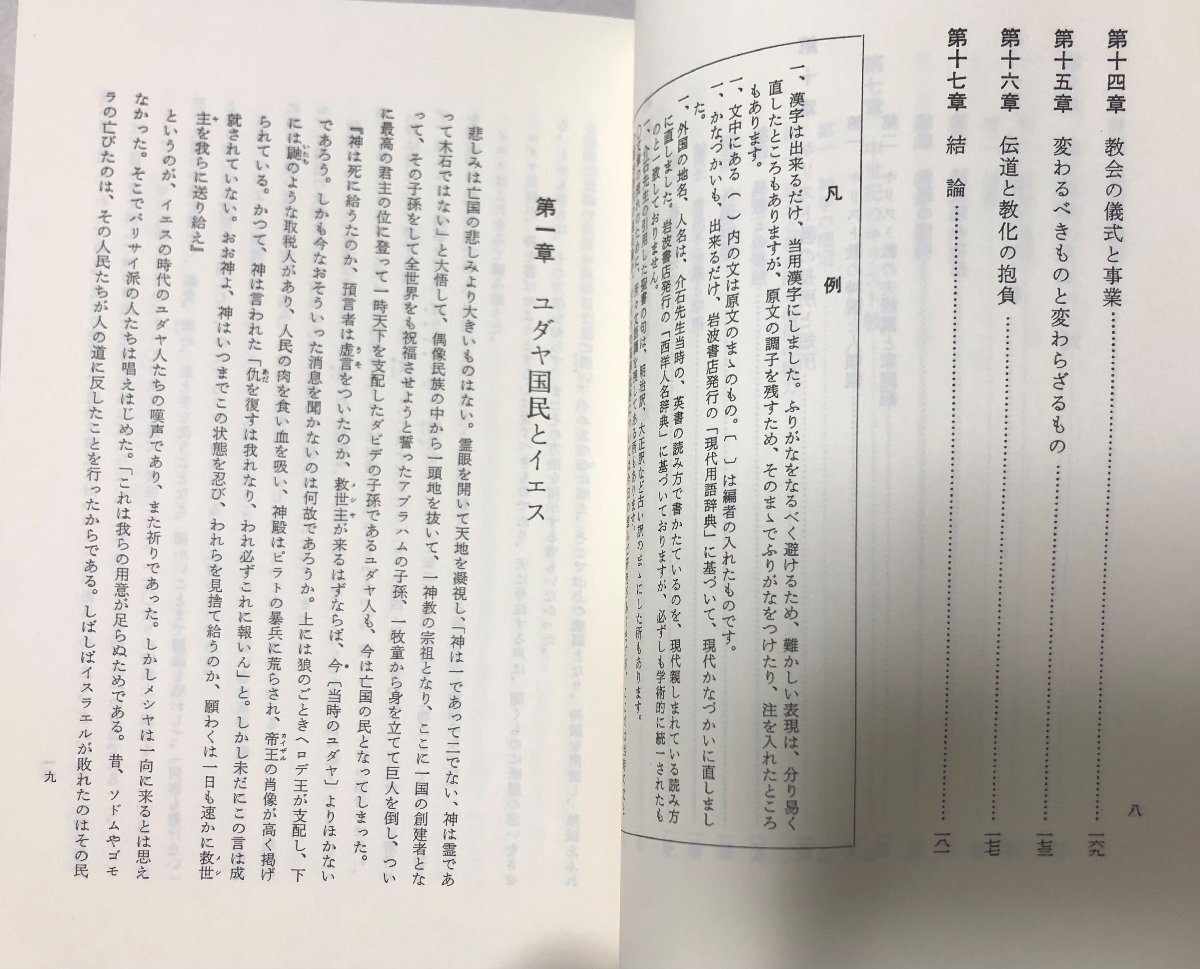 第十四章 教会の儀式と事業……………………一六九
第十五章 変わるべきものと変わらざるもの……………………一七三
第十六章 伝道と教化の抱負……………………一七七
第十七章 結論……………………一八一
八
凡例
一、漢字は出来るだけ、当用漢字にしました。ふりがなをなるべく避けるため、難かしい表現は、分り易く
直したところもありますが、原文の調子を残すため、そのまゝでふりがなをつけたり、注を入れたところ
もあります。
一、文中にある( )内の文は原文のまゝのもの。〔 〕は編者の入れたものです。
一、かなづかいも、出来るだけ、岩波書店発行の「現代用語辞典」に基づいて、現代かなづかいに直しまし
た。
一、外国の地名、人名は、介石先生当時の、英書の読み方で書かたているのを、現代親しまれている読み方
に直しました。岩波書店発行の「西洋人名辞典」に基づいておりますが、必ずしも学術的に統一されたも
のと一致しておりません。
一、介石先生の引用した聖書の句は、明治訳、大正訳など古い訳の
にした所もあります。
第一章 ユダヤ国民とイエス
悲しみは亡国の悲しみより大きいものはない。霊眼を開いて天地を凝視し、「神は一であって二でない、神は霊であ
って木石ではない」と大悟して、偶像民族の中から一頭地を抜いて、一神教の宗祖となり、ここに一国の創建者とな
って、その子孫をして全世界をも祝福させようと誓ったアブラハムの子孫、一牧童から身を立てて巨人を倒し、つい
に最高の君主の位に登って一時天下を支配したダビデの子孫であるユダヤ人も、今は亡国の民となってしまった。
『神は死に給うたのか、預言者は虚言をついたのか、救世主が来るはずならば、今〔当時のユダヤ〕よりほかない
であろう。しかも今なおそういった消息を聞かないのは何故であろうか。上には狼のごときヘロデ王が支配し、下
には鼬のような取税人があり、人民の肉を食い血を吸い、神殿はピラトの暴兵に荒らされ、帝王の肖像が高く掲げ
られている。かつて、神は言われた「仇を復すは我れなり、われ必ずこれに報いん」と。しかし未だにこの言は成
就されていない。おお神よ、神はいつまでこの状態を忍び、われらを見捨て給うのか、願わくは一日も速かに救世
主を我らに送り給え』
というのが、イエスの時代のユダヤ人たちの嘆声であり、また祈りであった。しかしメシヤは一向に来るとは思え
なかった。そこでパリサイ派の人たちは唱えはじめた。「これは我らの用意が足らぬためである。昔、ソドムやゴモ
ラの亡びたのは、その人民たちが人の道に反したことを行ったからである。しばしばイスラエルが敗れたのはその民
一九